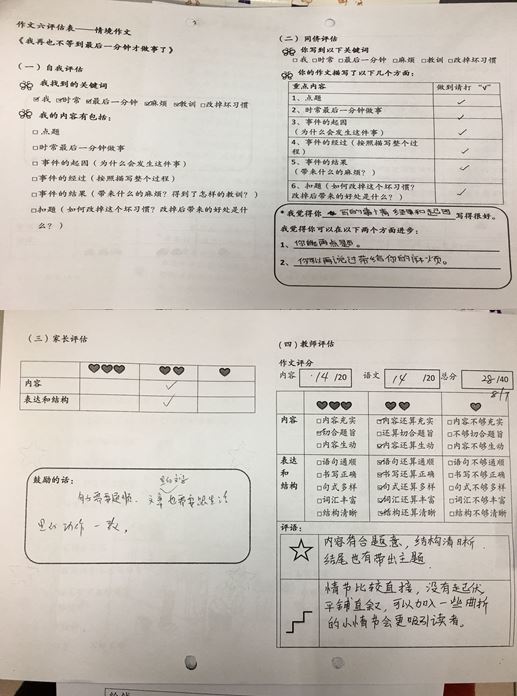 作文六评估表——情境作文
《我再也不等到最后一分钟才做事了》
（一）自我评估
我找到的关键词
☑我 ☑时常 ☑最后一分钟 ☑麻烦 ☑教训 □改掉坏习惯
我的内容有包括：
□点题
□时常最后一分钟做事
□事件的起因（为什么会发生这件事）
□事件的经过（按照描写整个过程）
□事件的结果（带来什么的麻烦？得到了怎样的教训？）
□扣题（如何改掉这个坏习惯？改掉后带来的好处是什
么？）
（二）同侪评估
你写到以下关键词
□我 □时常 □最后一分钟 □麻烦 □教训 □改掉坏习惯
你的作文描写了以下几个方面：
重点内容 做到请打 “√”
1、点题 ✓
2、时常最后一分钟做事 ✓
3、事件的起因
（为什么会发生这件事） ✓
4、事件的经过（按照描写整个过
程） ✓
5、事件的结果
（带来什么的麻烦？） ✓
6、扣题（如何改掉这个坏习惯？
改掉后带来的好处是什么？） ✓
*我觉得你 写的事情经过和起因 写得很好。
我觉得你可以在以下两个方面进步：
1、你能再点题。
2、你可以再说过带给你的麻烦。
（三）家长评估
内容 ✓
表达和结构 ✓
鼓励的话：
（四）教师评估
作文评分
内容 14 /20 语文 14 /20 总分 28 /40
内容 □内容充实 ☑内容还算充实 □内容不够充实
☑切合题旨 □还算切合题旨 □不够切合题旨
□内容生动 ☑内容还算生动 □内容不够生动
表达和结构 □语句通顺 ☑语句还算通顺 □语句不够通顺
□书写正确 ☑书写还算正确 □书写不够正确
□句式多样 ☑句式还算多样 □句式不够多样
□词汇丰富 ☑词汇还算丰富 □词汇不够丰富
□结构清晰 ☑结构还算清晰 □结构不够清晰
评语：
内容符合题意，结构清晰。
结尾也有带出主题。
情节比较直接，没有起伏
平铺直叙，可以加入一些曲折
的小情节会更吸引读者。